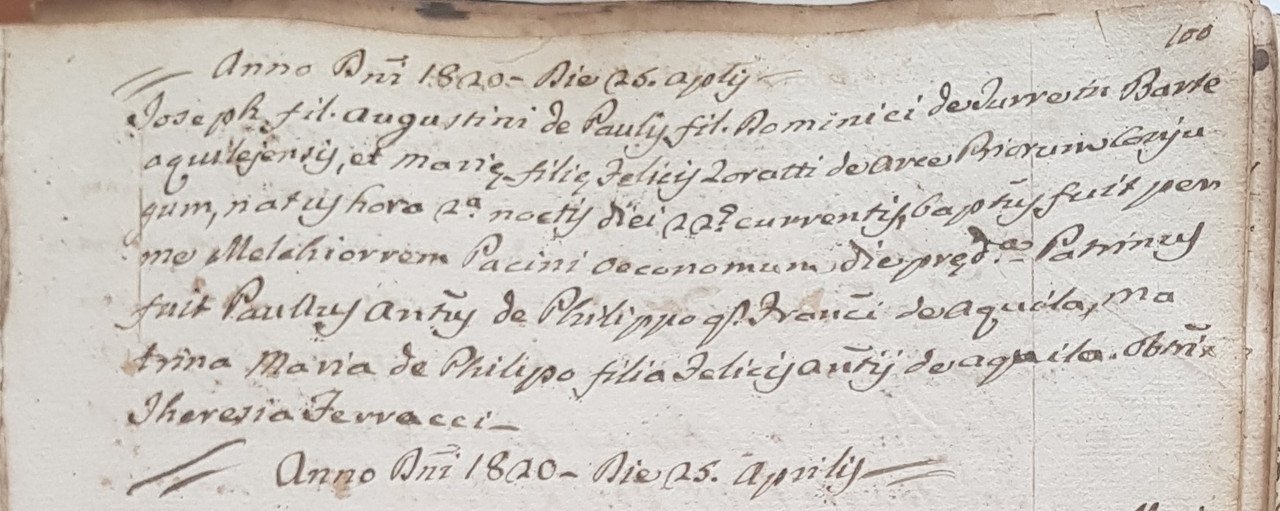 100
Anno Dñi 1820 - Die 25. aplis
Joseph fil. Augustini de Paulis fil. Dominici de Turre in Parte
aquilejensis, et Marię filię Felicis Zoratti de Arce Priorum Conju
gum, natus hora 2ª noctis diei 22ª currentis, baptũs fuit per
me Melchiorrem Pacini Oeconomum die pręd.ª - Patrinus
fuit Paullus Antũs de Philippo qͫ. Franc̃i de Aquila, Ma
trina Maria de Philipo filia Felicis Añtij de aquila. Obst̃rix
Theresia Ferracci -
Anno Dñi 1820 - Die 25. Aprilis